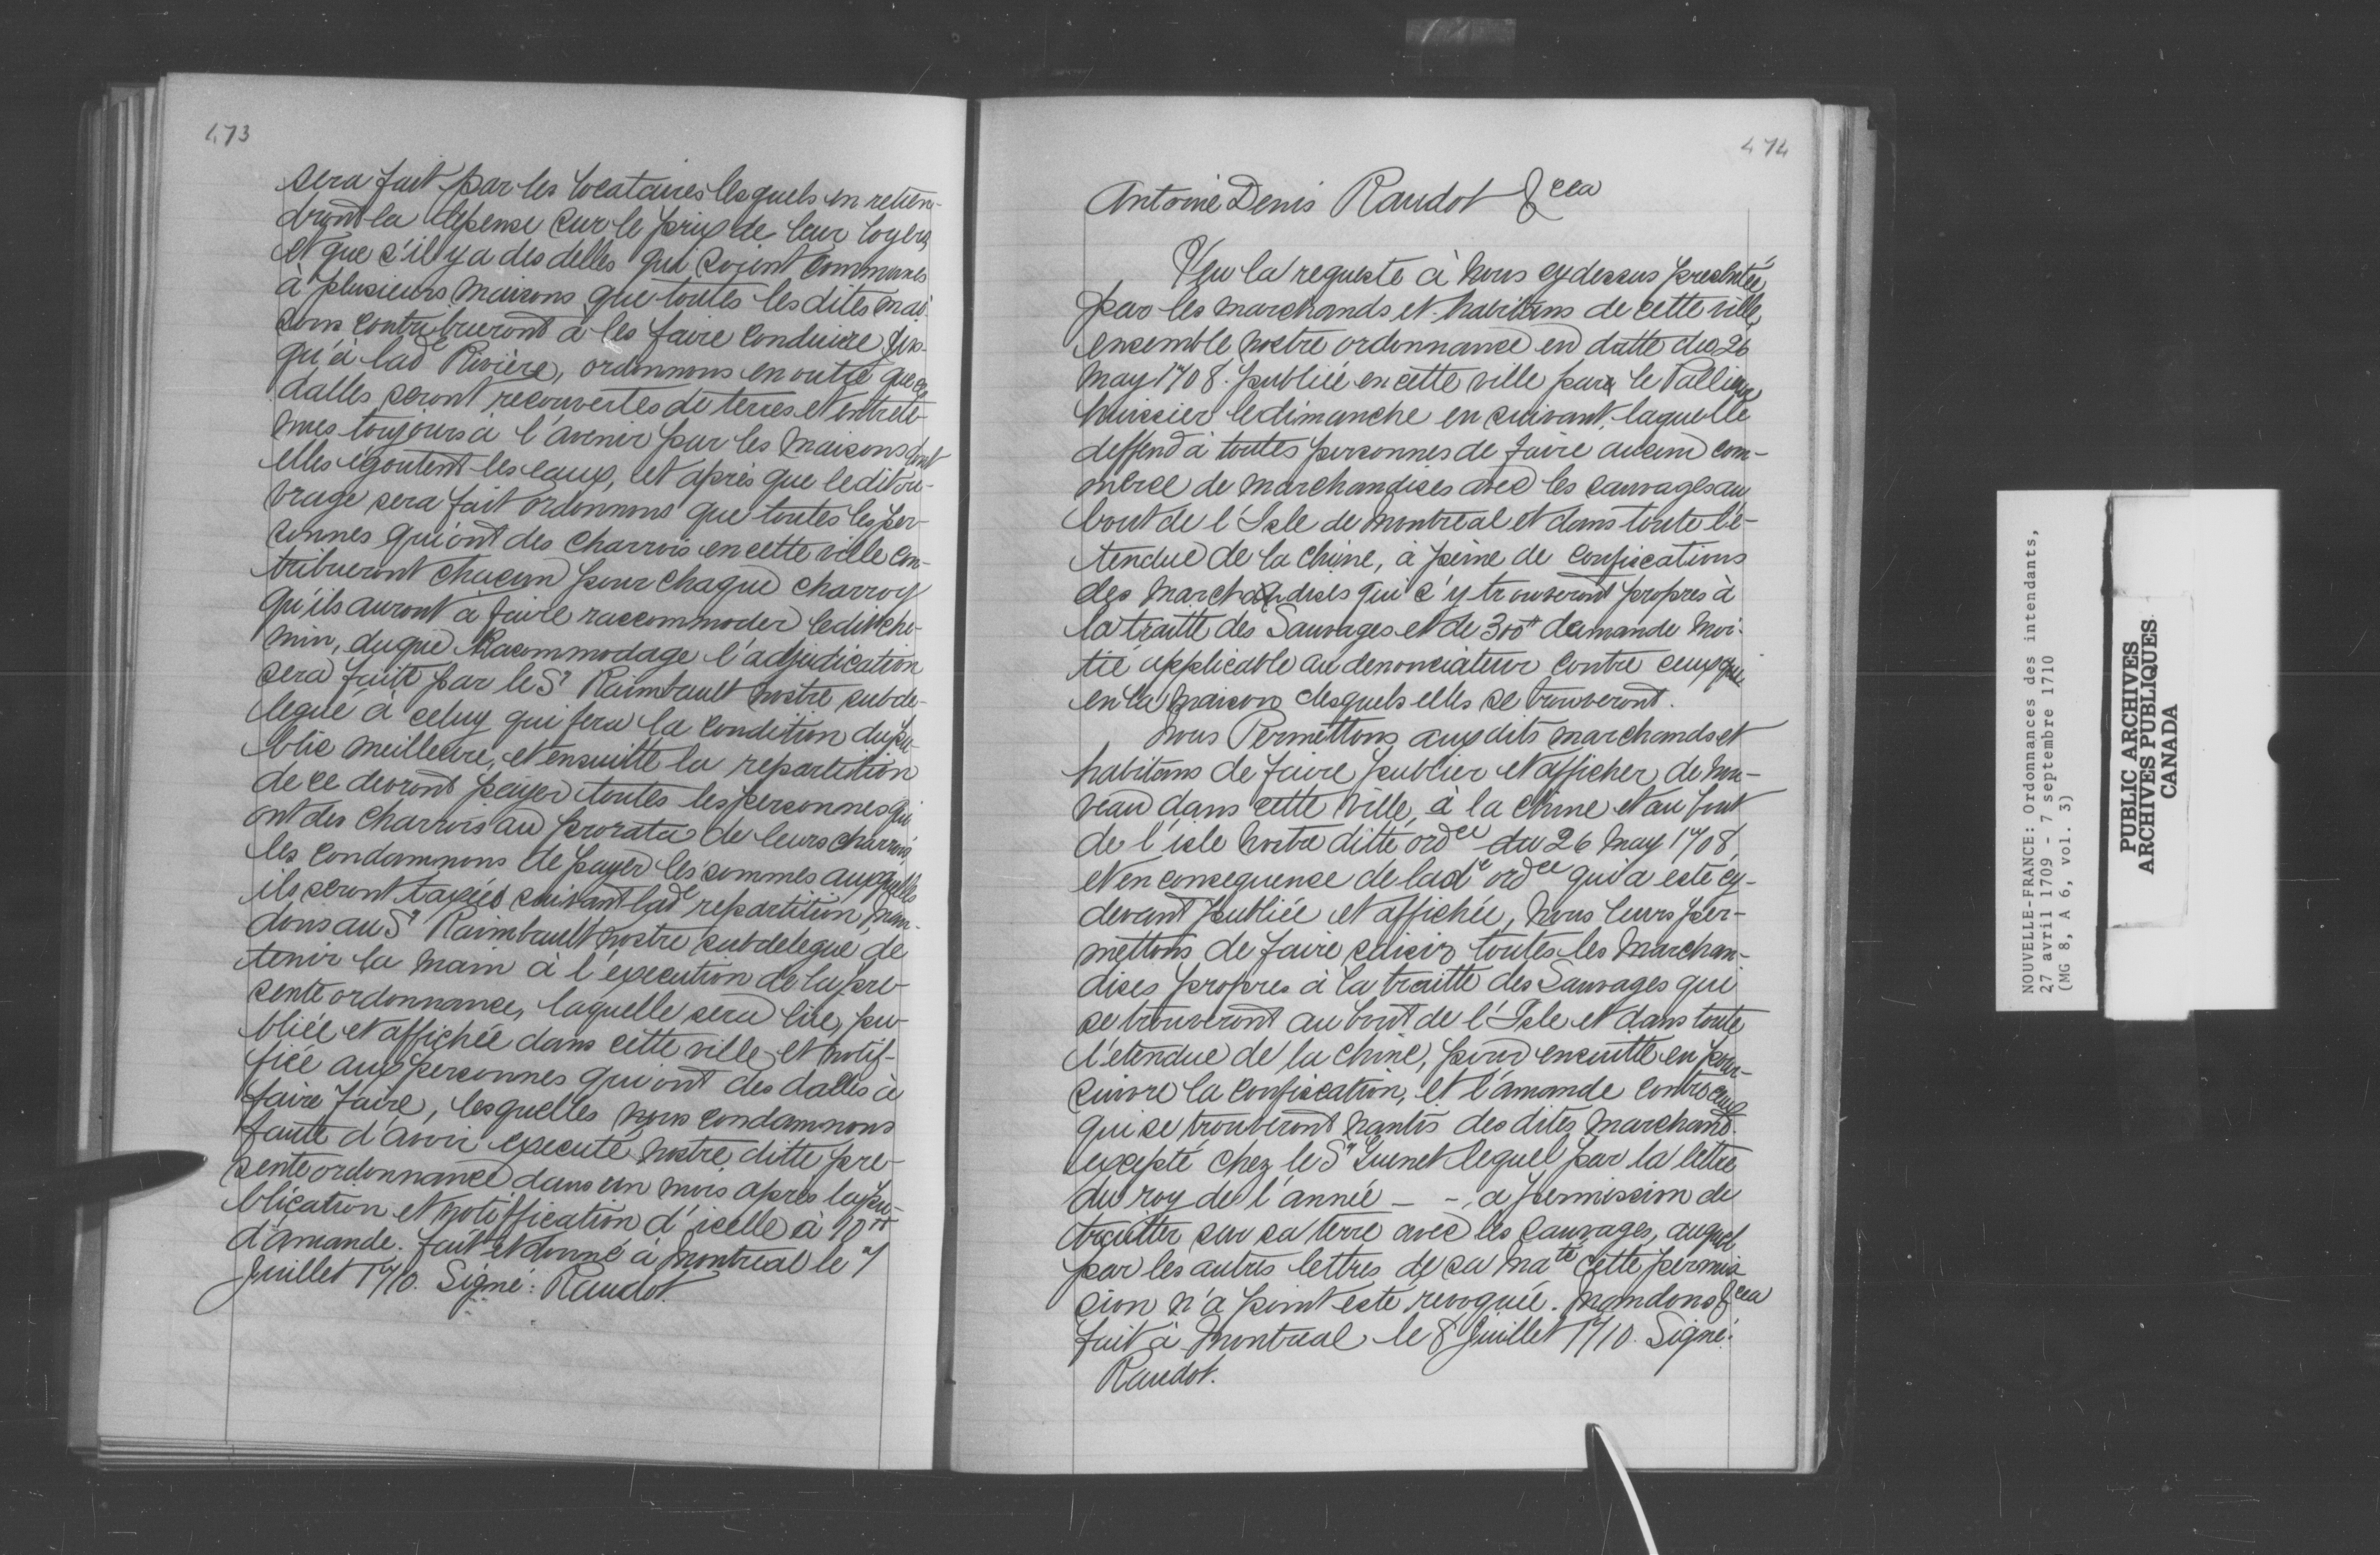 473
sera fait par les locataires lesquels en retien-
dront la depense sur le prix de leur loyers
et que s'il y a des delles qui soient communes
à plusieurs maisons que toutes les dites mai-
sons contribueront à les faire conduire jus-
qu'à lade Rivière, ordonnons en outre que ces
dalles seront recouvertes de terres et entrete-
nues toujours à l'avenir par les maisons dont
elles egoutent les eaux, et après que ledit ou-
vrage sera fait ordonnons que toutes les per-
sonnes qui ont des charrois en cette ville con-
tribueront chacun pour chaque charroy
qu'ils auront à faire raccommoder ledit che-
min, duquel Racommodage l'adjudication
sera faite par le Sr Raimbault nostre subde-
legué à celuy qui fera la condition du pu-
blic meilleure, et ensuitte la repartition
de ce devront payer toutes les personnes qui
ont des charrois au prorata de leurs charrois,
les condamnons de payer les sommes auxquelles
ils seront taxées suivant lade repartition, man-
dons au Sr Raimbault nostre subdelegué de
tenir la main à l'execution de la pre-
sente ordonnance, laquelle sera lue, pu-
bliée et affichée dans cette ville et notif-
fiée aux personnes qui ont des dalles à
faire faire, lesquelles nous condamnons
faute d'avoir executé nostre ditte pre-
sente ordonnance dans un mois après la pu-
blication et notiffication d'icelle à 10tt
d'amande. fait et donné à Montreal le 7
Juillet 1710. Signé: Raudot.
474
Antoine Denis Raudot &cea
Veu la requeste à nous cy dessus presentée
par les marchands et habitans de cette ville,
ensemble nostre ordonnance en datte du 26
may 1708. publiée en cette ville par le Pallieur
huissier le dimanche en suivant, laquelle
deffend à toutes personnes de faire aucun com-
merce de marchandises avec les sauvages au
bout de l'Isle de Montreal et dans toute l'é-
tendue de la Chine, à peine de confiscations
des marchandises qui s'y trouveront propres à
la traitte des Sauvages et de 300tt damande moi-
tié applicable au denonciateur contre ceux qui
en la maison desquels elles se trouveront.
Nous Permettons aux dits marchands et
habitans de faire publier et afficher de nou-
veau dans cette ville, à la Chine et au bout
de l'isle nostre ditte ordce du 26 May 1708,
et en consequence de lade ordce qui a esté cy-
devant publiée et affichée, nous leurs per-
mettons de faire saisir toutes les Marchan-
dises propres à la traitte des Sauvages qui
se trouveront au bout de l'Isle et dans toute
l'etendue de la Chine, pour ensuitte en pour-
suivre la confiscation, et l'amande contre ceux
qui se trouveront nantis des dites marchand.
excepté chez le Sr Guenet lequel par la lettre
du roy de l'année - -, a permission de
traitter sur sa terre avec les sauvages, auquel
par les autres lettres de sa Maté cette permis
sion n'a point esté revoquée. Mandons &cea
fait à Montreal le 8 Juillet 1710. Signé:
Raudot.
NOUVELLE-FRANCE: Ordonnances des intendants,
27 avril 1709 - 7 septembre 1710
(MG 8, A 6, vol. 3)
PUBLIC ARCHIVES
ARCHIVES PUBLIQUES
CANADA